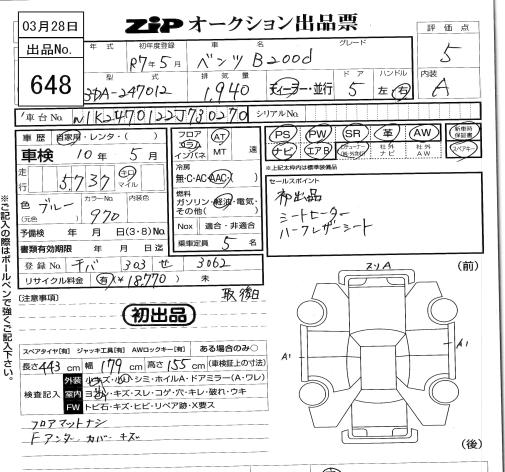 03月28日
出品No.
648
ZIP オークション出品票
年式 初年度登録 車名 グレード
R7年5月 ベンツ B200d
評価点
5
内装
A
型式 排気量 ドア ハンドル
3DA-247012 1,940 ディーラー・並行 5 左・右
車台No. N1K2470122J730270 シリアルNo.
車歴 自家用・レンタ・( )
車検 10年 5月
走行 5,737 キロ マイル
色(元色) ブルー カラーNo. 970 内装色
予備検 年 月 日(3・8)No.
書類有効期限 年 月 日迄
登録No. チバ 303 せ 3062
リサイクル料金 有(¥18,770) 未
フロア コラム インパネ AT MT 速
冷房
無・C・AC・AAC・( )
燃料
ガソリン・軽油・電気・その他( )
Nox 適合・非適合
乗車定員 5 名
PS PW SR 革 AW 新車時保証書
ナビ エアB 社外 社外AW スペアキー
※上記太枠内は標準装備品
セールスポイント
初出品
シートヒーター
ハーフレザーシート
取 後日
[注意事項]
初出品
スペアタイヤ[有] ジャッキ工具[有] AWロックキー[有] ある場合のみ○
長さ443cm 幅179cm 高さ155cm (車検証上の寸法)
検査記入
外装 小キズ・小凹・シミ・ホイルA・ドアミラー(A・ワレ)
室内 ヨゴレ・キズ・スレ・コゲ・穴・キレ・破れ・ウキ
FW トビ石・キズ・ヒビ・リペア跡・X要ス
フロアマットナシ
Fアンダーカバーキズ
(前)
A1
A1
(後)
※ご記入の際はボールペンで強くご記入下さい。